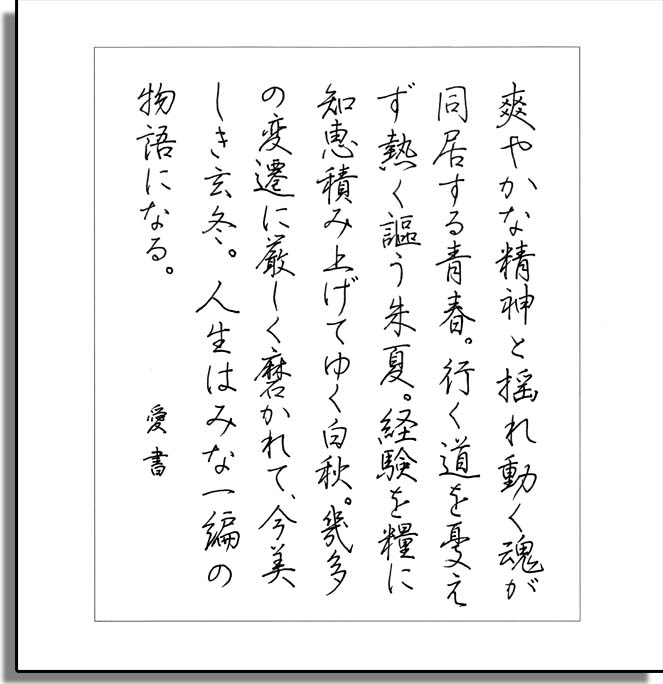 爽やかな精神と揺れ動く魂が
同居する青春。行く道を憂え
ず熱く謳う朱夏。経験を糧に
知恵積み上げてゆく白秋。幾多
の変遷に厳しく磨かれて、今美
しき玄冬。人生はみな一編の
物語になる。
愛書